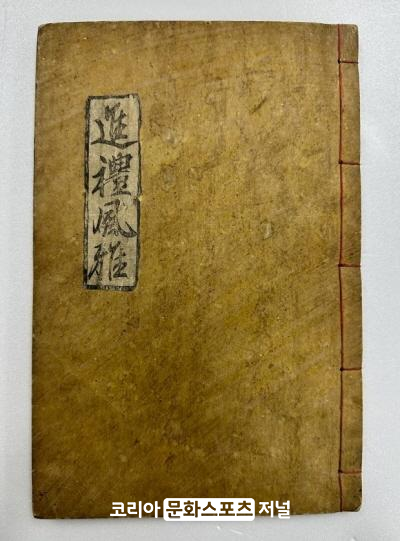 進禮風雅
코리아 문화스포츠 저널